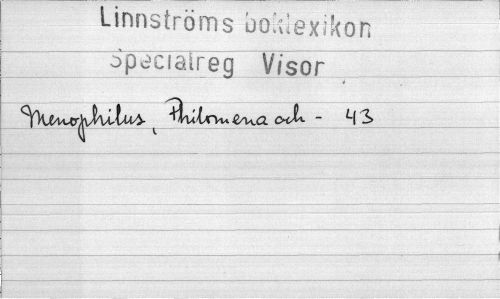 Linnströms boklexikon
Specialreg Visor
Menophilus, Philomena och - 43